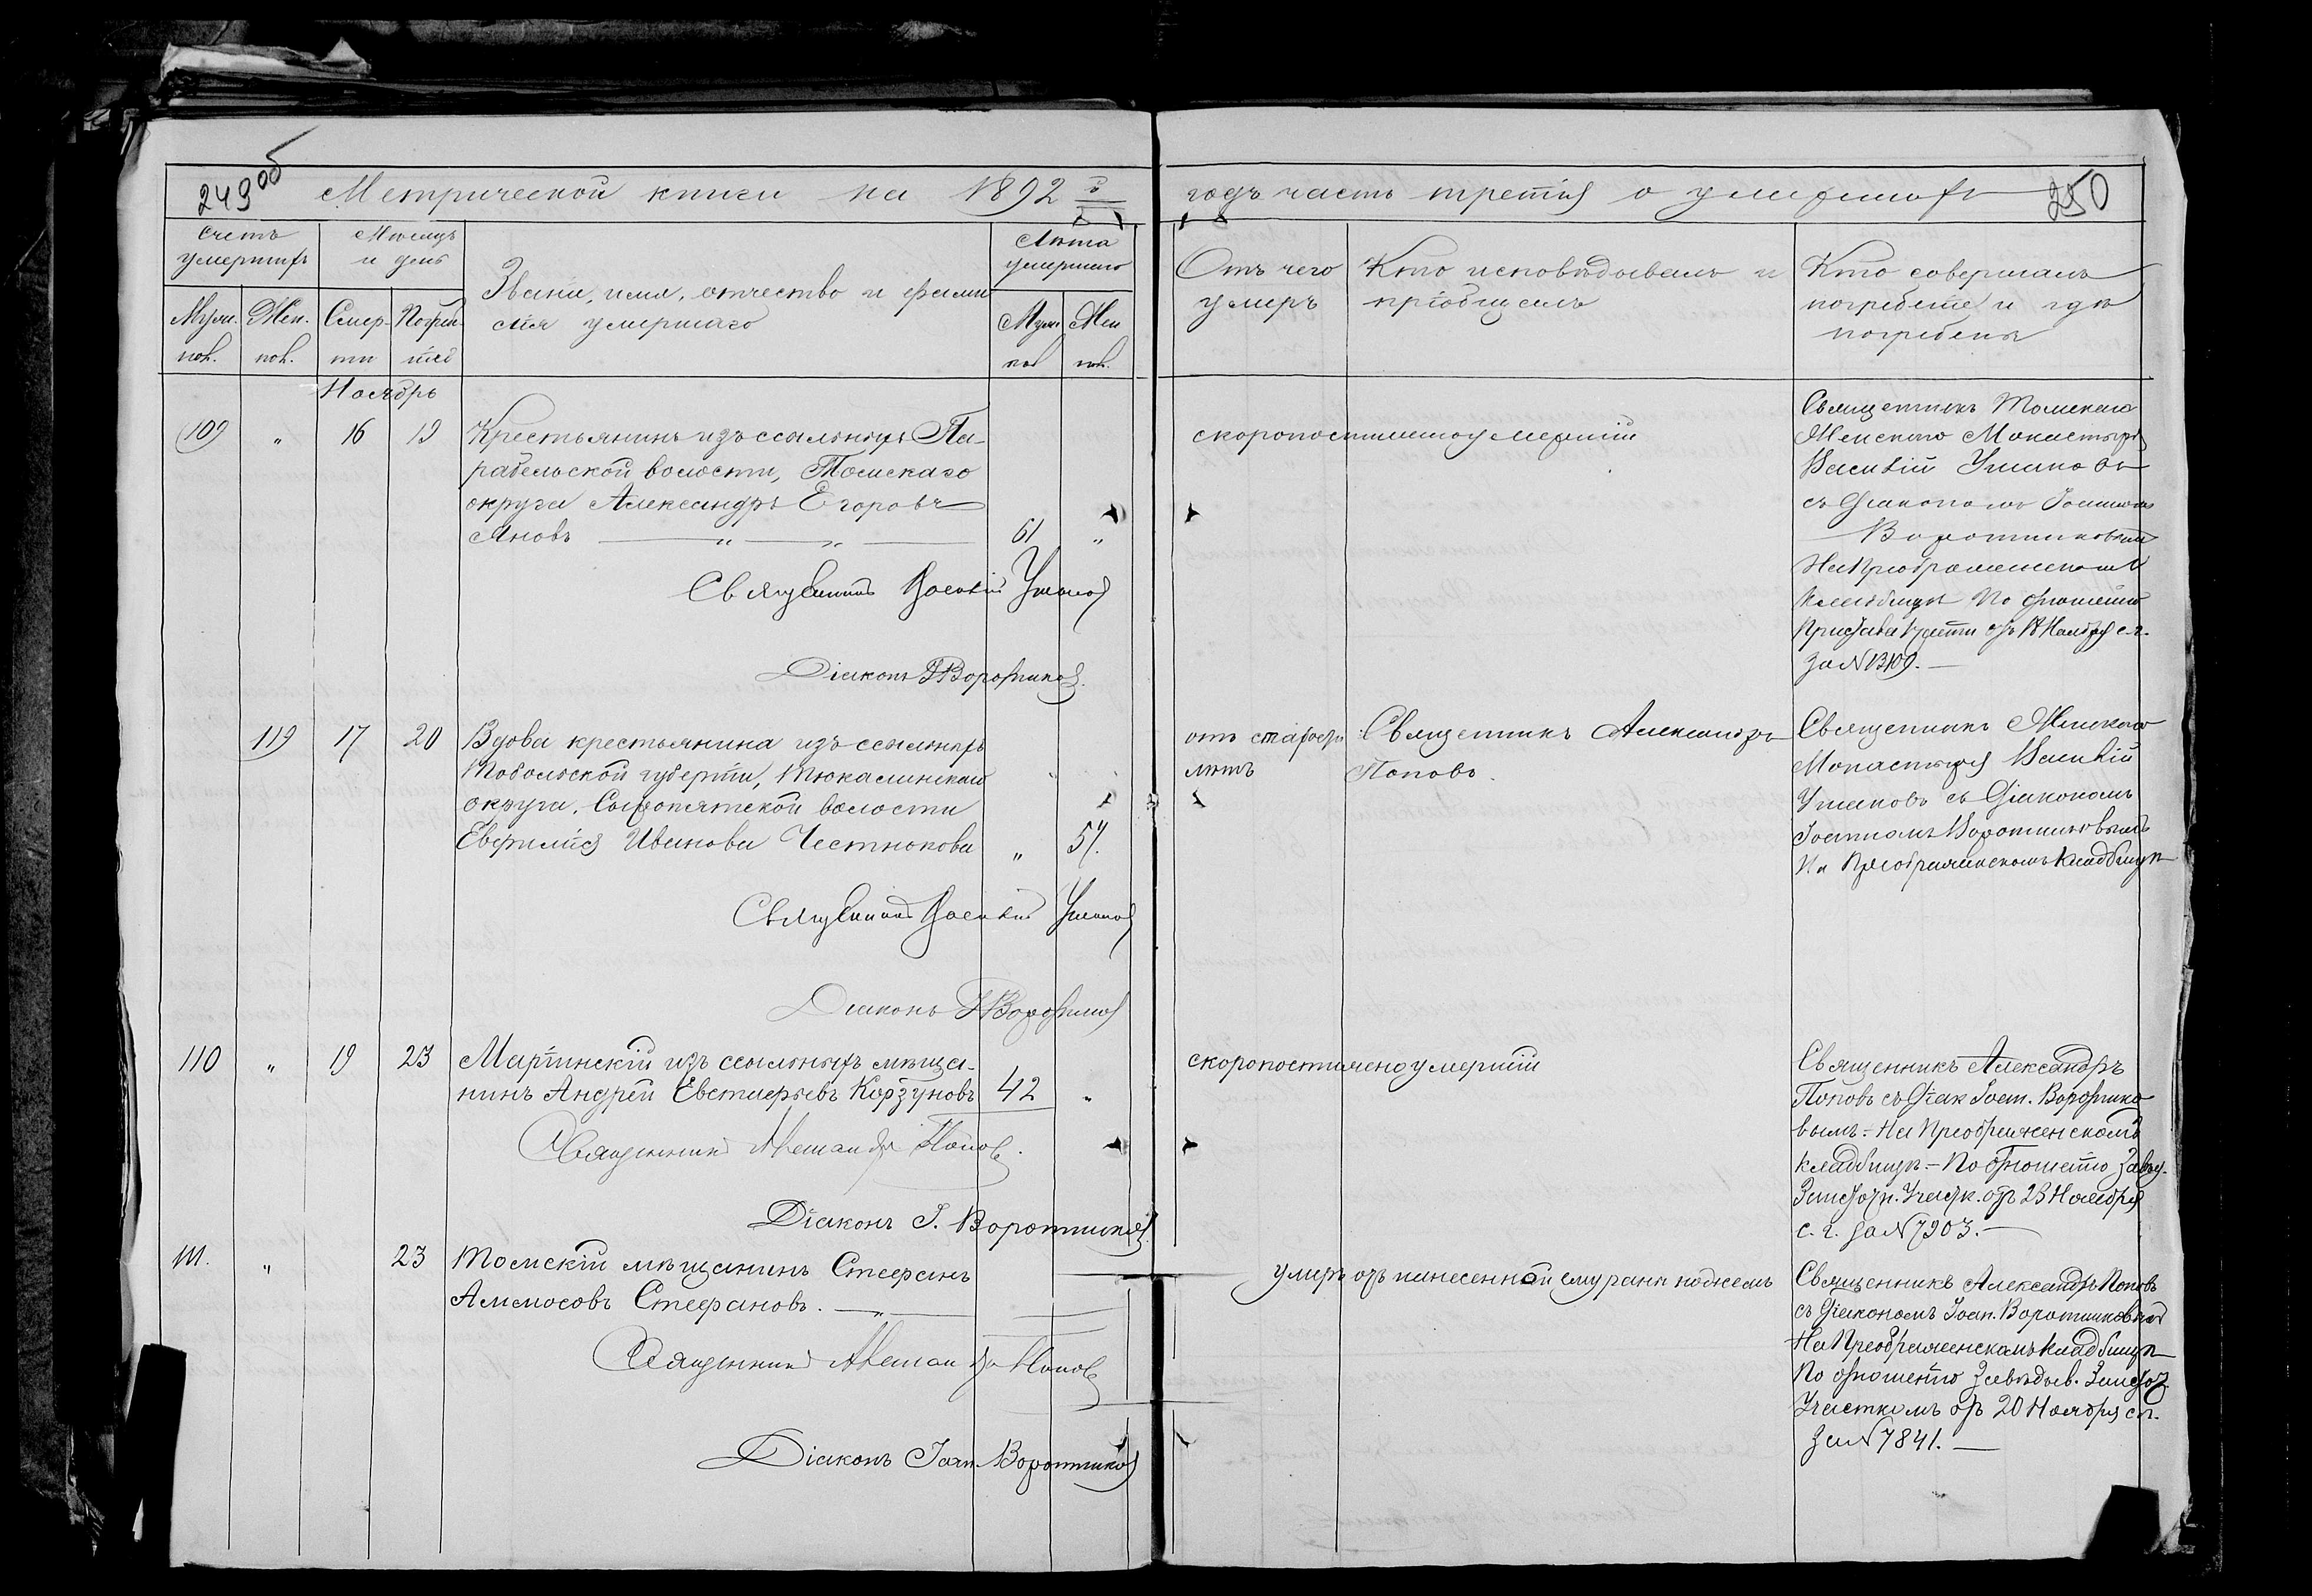 249об
Метрической книги на 1892 й
годъ часть третія о умершихъ
250
Счетъ умершихъ
Мѣсяцъ и день
Званіе, имя, отчество и фами
лія умершаго
Лѣта умершаго
Отъ чего умеръ
Кто исповѣдывалъ и
пріобщалъ
Кто совершалъ
погребеніе и гдѣ
погребены
Муж. пол.
Жен. пол.
Смер-
ти
Погреб.
нія
Муж.
пол
Жен
пол.
Ноябрь
109 „ 16 19
Крестьянинъ изъ ссыльныхъ Па-
рабельской волости, Томскаго
округа Александръ Егоровъ
Яновъ — „ — „ — 61 „
Священникъ Василій Ушаковъ
Діаконъ І Воротниковъ.
скоропостижно умершій
Священникъ Томскаго
Женскаго Монастыря
Василій Ушаковъ
съ Діакономъ Іоанномъ
Воротниковымъ
На Преображенскомъ
Кладбищѣ По отношенію
Пристава части отъ Ноября с.г.
За N 13109. —
119 17 20
Вдова крестьянина изъ ссыльныхъ
Тобольской губерніи, Тюкалинскаго
округа, Сыропятской волости
Евфимія Иванова Честнокова „ 57.
Священникъ Василій Ушаковъ
Діаконъ І Воротниковъ
отъ старости
лѣтъ
Священникъ Александръ
Поповъ.
Священникъ Женскаго
Монастыря Василій
Ушаковъ съ Діакономъ
Іоанномъ Воротниковымъ
На Преображенскомъ Кладбищѣ
110 „ 19 23
Маріинскій изъ ссыльныхъ мѣща-
нинъ Андрей Евстифьевъ Корзуновъ 42 „
Священникъ Александръ Поповъ.
Діаконъ І. Воротниковъ.
скоропостижно умершій
Священникъ Александръ
Поповъ съ Діак Іоан. Воротнико
вымъ. – На Преображенскомъ
кладбищѣ. – По отношенію Завѣд.
Заисточн. Участк. отъ 23 Ноября
с. г. за N 7903. —
111. „ 23
Томскій мѣщанинъ Стефанъ
Аммосовъ Стефановъ. — „ —
Священникъ Александръ Поповъ
Діаконъ Іоан. Воротниковъ
Умеръ отъ нанесенной ему раны ножемъ
Священникъ Александръ Поповъ
съ Діакономъ Іоан. Воротниковымъ
На Преображенскомъ Кладбищѣ
По отношенію Завѣдыв. Заисточ.
Участкомъ отъ 20 Ноября с.г.
За N 7841. —